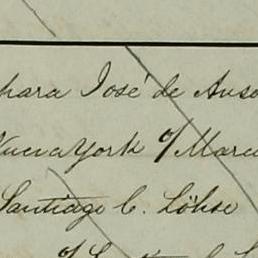 para José de Anso
Nueva York o/ Marc
Santiago C. Löhse